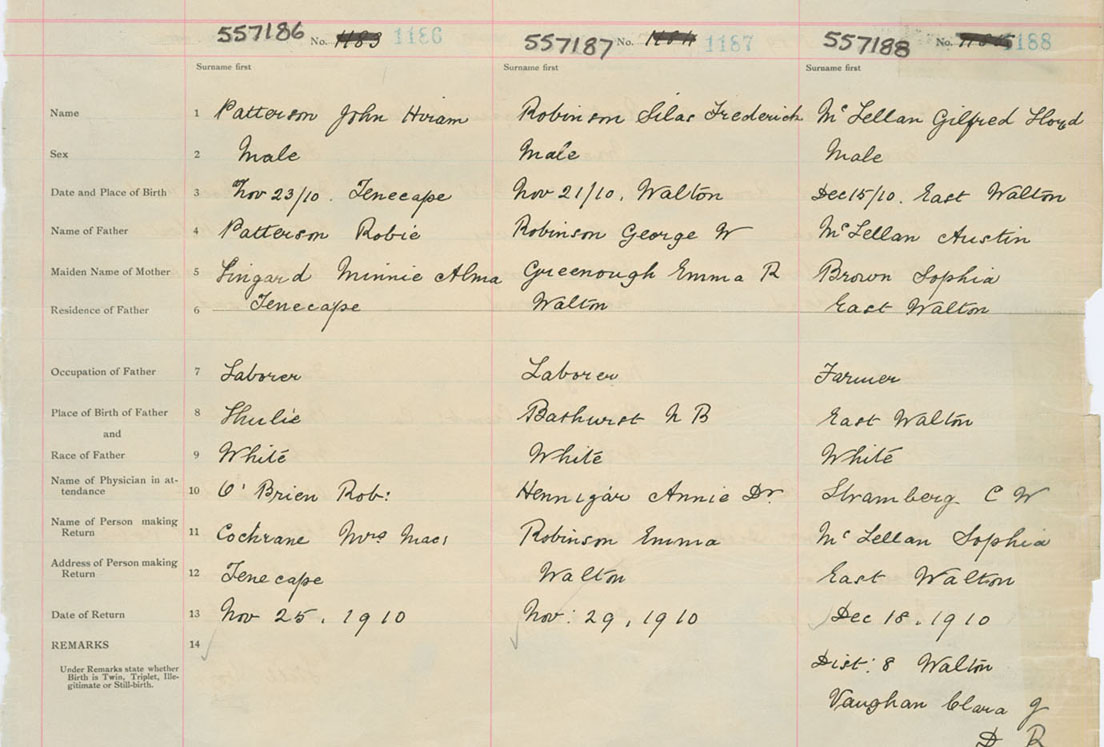 557186 No. 1186 557187 No. 1187 557188 No. 1188
Surname first Surname first Surname first
Name 1 Patterson John Hiram Robinson Silas Frederick McLellan Gilfred Lloyd
Sex 2 Male Male Male
Date and Place of Birth 3 Nov 23/10. Tenecape Nov 21/10. Walton Dec 15/10. East Walton
Name of Father 4 Patterson Robie Robinson George W McLellan Austin
Maiden Name of Mother 5 Lingard Minnie Alma Greenough Emma R Brown Sophia
Residence of Father 6 Tenecape Walton East Walton
Occupation of Father 7 Laborer Laborer Farmer
Place of Birth of Father 8 Shulie Bathurst N B East Walton
and
Race of Father 9 White White White
Name of Physician in at-
tendance 10 O'Brien Rob: Hennigar Annie Dr Stramberg C W
Name of Person making
Return 11 Cochrane Mrs Mac; Robinson Emma McLellan Sophia
Address of Person making
Return 12 Tenecape Walton East Walton
Date of Return 13 Nov 25, 1910 Nov: 29, 1910 Dec 18, 1910
REMARKS 14
Under Remarks state whether
Birth is Twin, Triplet, Ille-
gitimate or Still-birth.
Dist: 8 Walton
Vaughan Clara J
D R